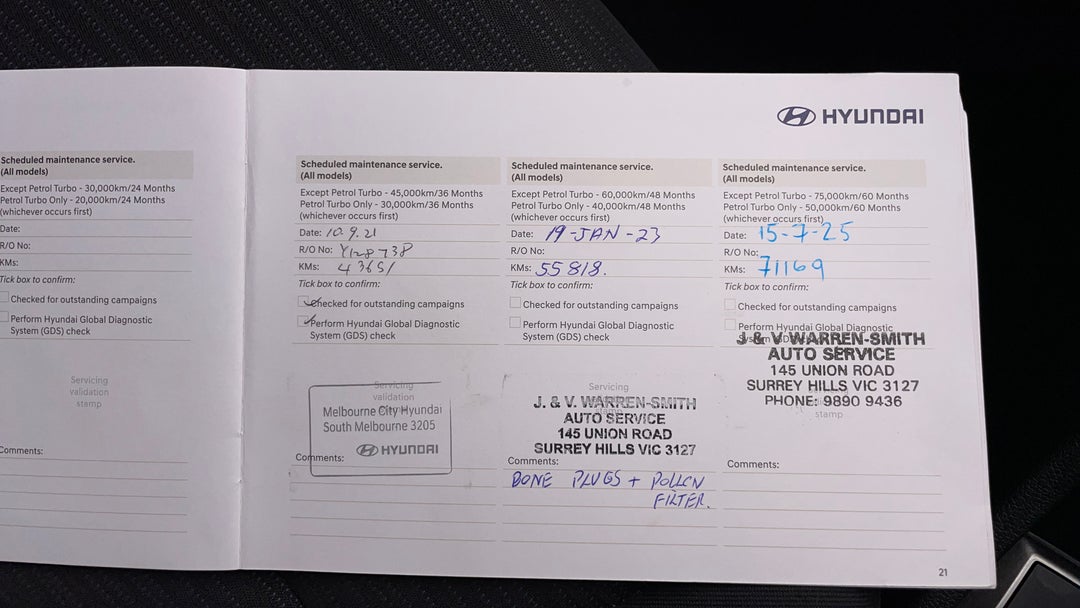 HYUNDAI
Scheduled maintenance service.
(All models)
Except Petrol Turbo - 30,000km/24 Months
Petrol Turbo Only - 20,000km/24 Months
(whichever occurs first)
Date:
R/O No:
KMs:
Tick box to confirm:
Checked for outstanding campaigns
Perform Hyundai Global Diagnostic
System (GDS) check
Servicing
validation
stamp
Comments:
Scheduled maintenance service.
(All models)
Except Petrol Turbo - 45,000km/36 Months
Petrol Turbo Only - 30,000km/36 Months
(whichever occurs first)
Date: 10.9.21
R/O No:
KMs: 43651
Tick box to confirm:
Checked for outstanding campaigns
Perform Hyundai Global Diagnostic
System (GDS) check
Servicing
validation
Melbourne City Hyundai
South Melbourne 3205
HYUNDAI
Comments:
Scheduled maintenance service.
(All models)
Except Petrol Turbo - 60,000km/48 Months
Petrol Turbo Only - 40,000km/48 Months
(whichever occurs first)
Date: 19-JAN-23
R/O No:
KMs: 55818.
Tick box to confirm:
Checked for outstanding campaigns
Perform Hyundai Global Diagnostic
System (GDS) check
Servicing
validation
stamp
J. & V. WARREN-SMITH
AUTO SERVICE
145 UNION ROAD
SURREY HILLS VIC 3127
Comments:
DONE PLUGS + POLLEN
FILTER.
Scheduled maintenance service.
(All models)
Except Petrol Turbo - 75,000km/60 Months
Petrol Turbo Only - 50,000km/60 Months
(whichever occurs first)
Date: 15-7-25
R/O No:
KMs: 71169
Tick box to confirm:
Checked for outstanding campaigns
Perform Hyundai Global Diagnostic
System GDS check
J & V WARREN-SMITH
AUTO SERVICE
145 UNION ROAD
SURREY HILLS VIC 3127
PHONE: 9890 9436
stamp
Comments:
21